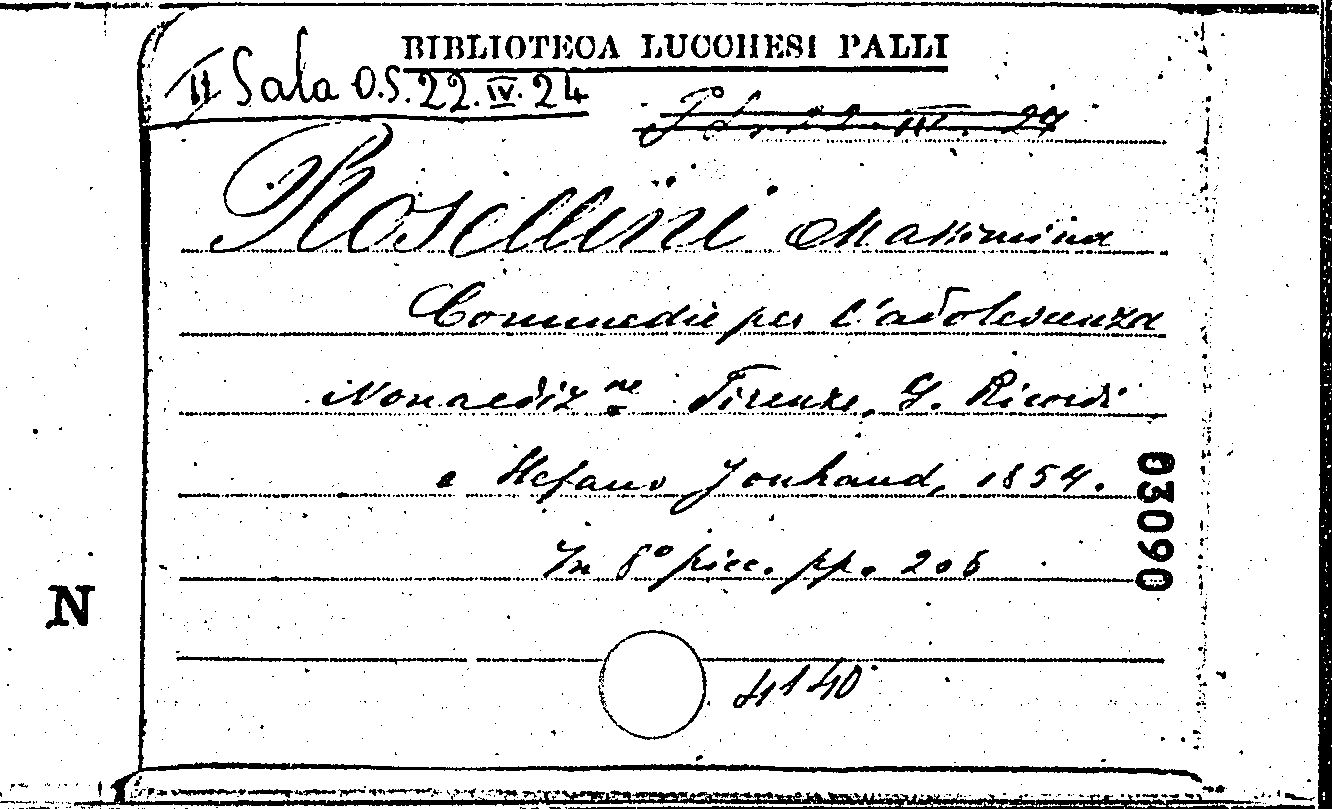 BIBLIOTECA LUCCHESI PALLI
II Sala O.S. 22. IV. 24
22. III. 27
Rosellini Massimina
Commedie per l'adolescenza
Nona ediz.ne Firenze, G. Ricordi
e Stefano Jouhaud, 1854.
In 8° picc. pp. 206
03090
N
4140